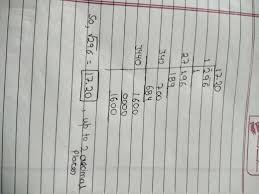 17.20
1 296
1
27 196
189
342 700
684
3440 1600
0000
1600
So, √296 = 17.20 up to 2 decimal
places